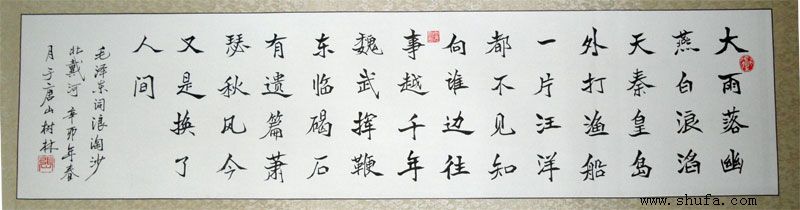 大雨落幽
燕白浪滔
天秦皇岛
外打渔船
一片汪洋
都不见知
向谁边往
事越千年
魏武挥鞭
东临碣石
有遗篇萧
瑟秋风今
又是换了
人间
毛泽东词浪淘沙
北戴河辛卯年春
月于唐山树林
www.shufa.com